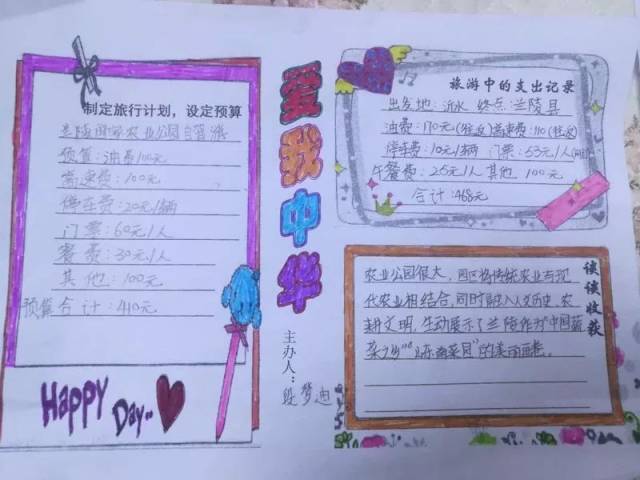 制定旅行计划，设定预算
兰陵国家农业公园自驾游
预算：油费100元
高速费：100元
停车费：20元/辆
门票：60元/人
餐费：30元/人
其他：100元
预算合计：410元
Happy
Day..
爱我中华
主办人：
段梦迪
旅游中的支出记录
出发地：沂水 终点：兰陵县
油费：170元(往返)高速费：110(往返)
停车费：10元/辆 门票：53元/人
午餐费：25元/人 其他 100元
合计：468元
谈谈收获
农业公园很大，园区将传统农业与现
代农业相结合，同时融入人文历史、农
耕文明，生动展示了兰陵作为“中国蔬
菜之乡”“山东南菜园”的美丽画卷。